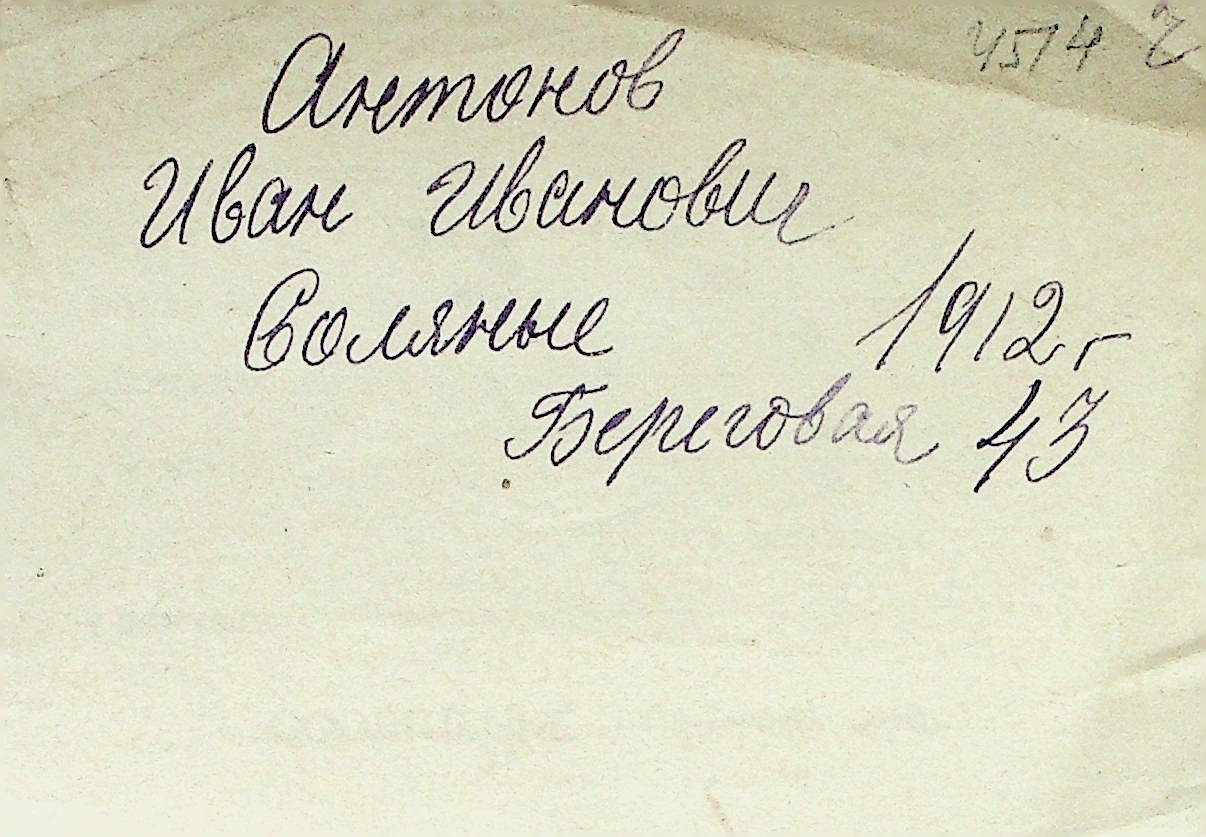 4514
Антонов
Иван Иванович
Соляные 1912г
Береговая 43